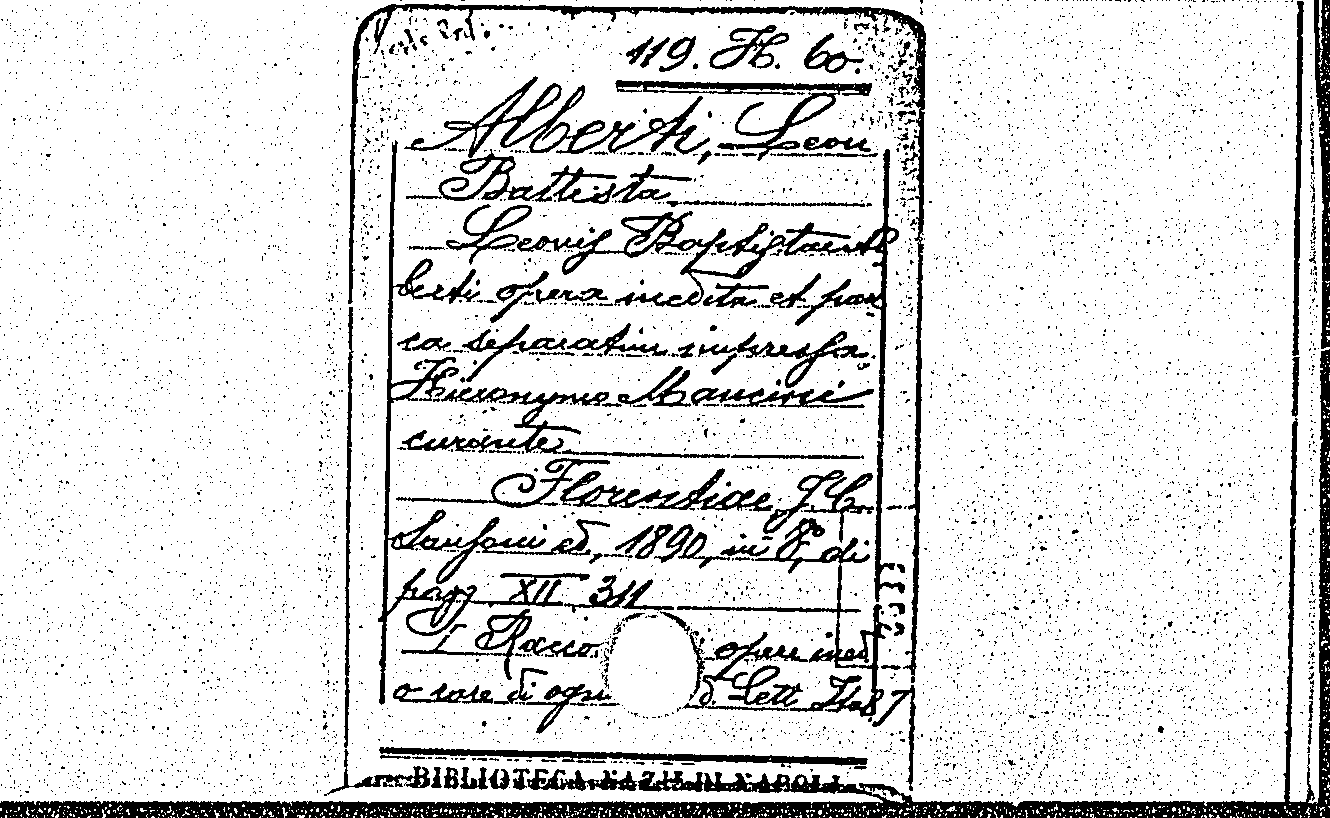 119. H. 60.
Alberti, Leon
Battista
Leonis Baptistae Al
berti opera inedita et pau
ca separatim impressa.
Hieronymo Mancini
curante.
Florentiae, J. C.
Sansoni ed, 1890, in 8°, di
pagg XII 311
[ Racco opere ined
o rare di ogni d. Lett Ital]
BIBLIOTECA NAZ. DI NAPOLI